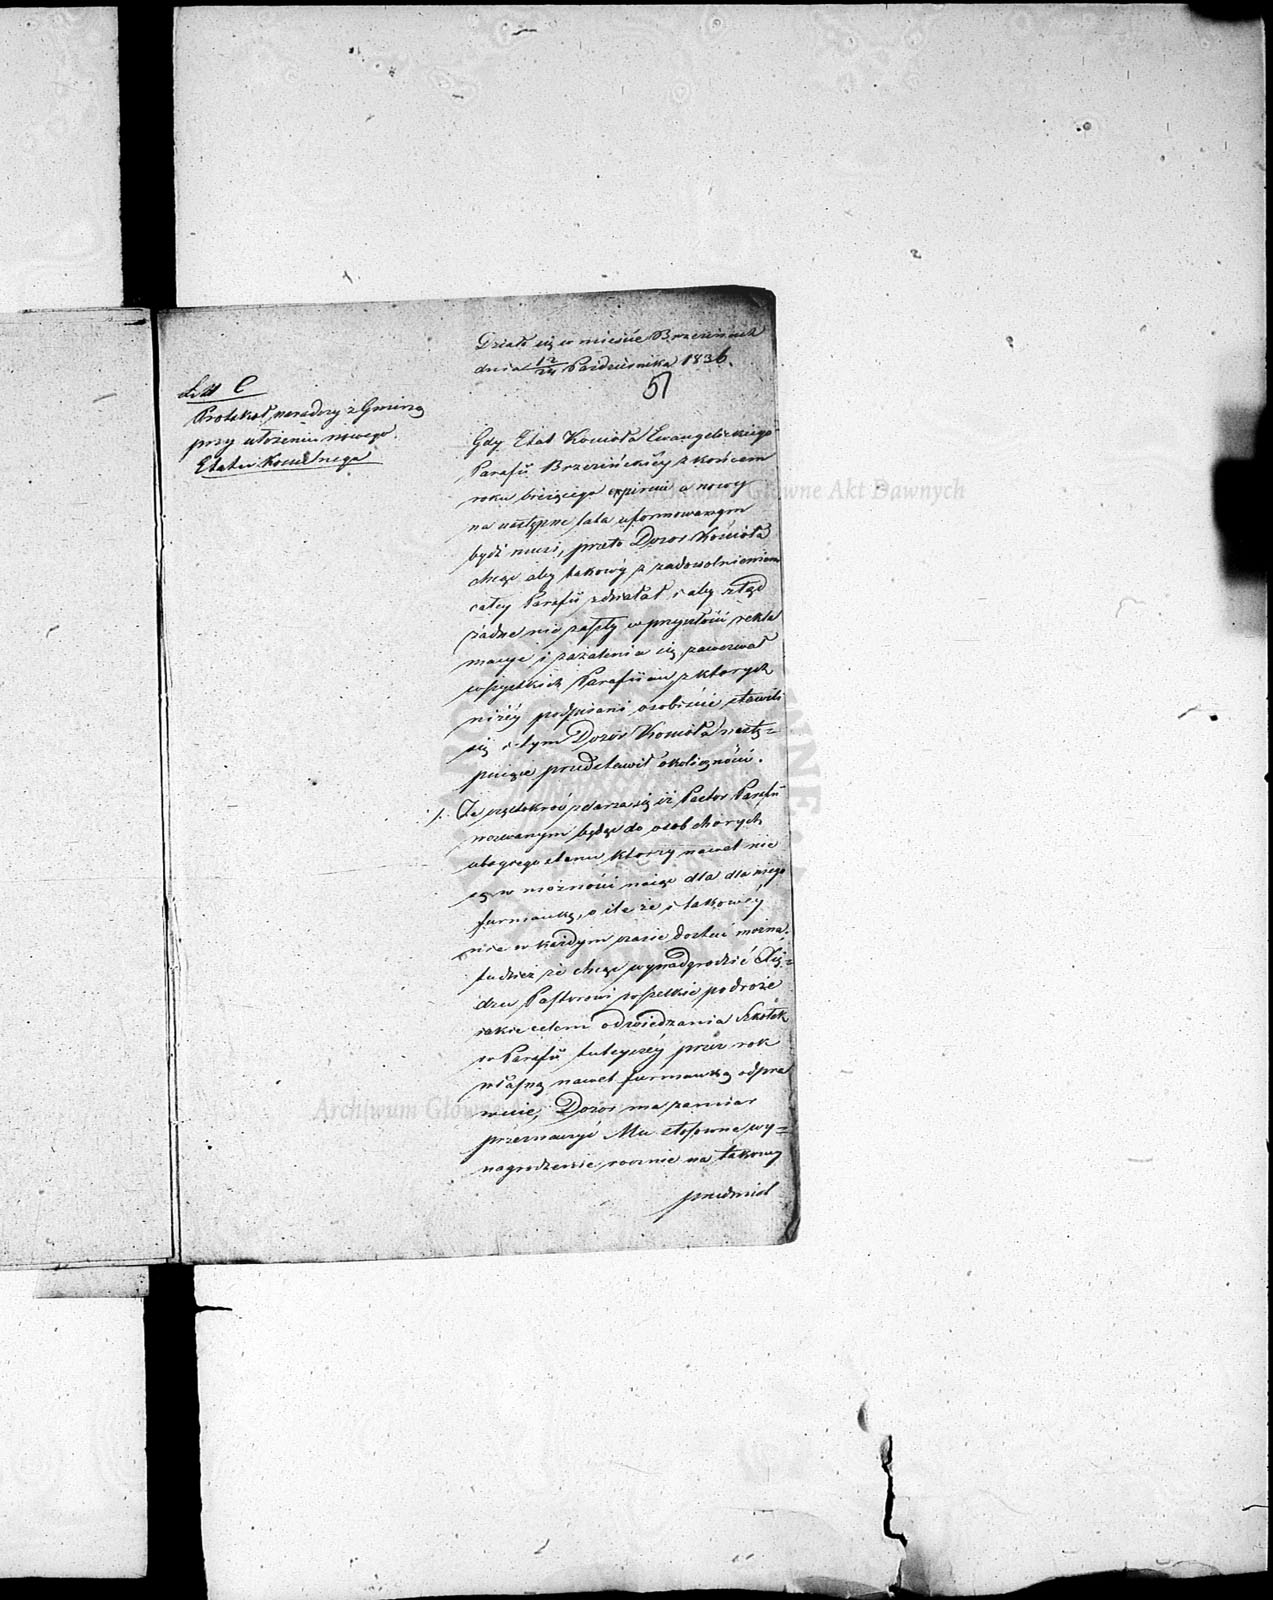 Działo się w mieście Brzezinach
dnia 12/24 Pazdziernika 1836.
51
Litt C
Protokół narady z Gminą
przy ułożeniu nowego
Etatu Kościelnego
Gdy Etat Kościoła Ewangelickiego
Parafii Brzezińskiéy z końcem
roku bieżącego expiruie a nowy
na następne lata uformowanym
bydź musi, przeto Dozor Kościoła
chcąc aby takowy z zadowolnieniem
całey Parafii zdziałał i aby ztąd
żadne nie zaszły w przyszłości rekla
macye i zażalenia się, zawezwał
wszystkich Parafiian z ktorych
niżéy podpisani osobiście stawili
się i tym Dozór Kościoła nastę=
puiące przedstawił okoliczności.
1. Że częstokroć zdarza się iż Pastor Parafii
wezwanym będąc do osob chorych
ubogiego stanu ktorzy nawet nie
są w możności naiąć dla niego
furmankę, o ile że i takowéy
nie w każdym czasie dostać można.
tudzież że chcąc wynadgrodzić Xię=
dzu Pastorowi wszelkie podróże
iakie celem odwiedzania Szkółek
w Parafii tuteyszéy przez rok
własną nawet furmanką odpra
wuie, Dozor ma zamiar
przeznaczyć Mu stosowne wy=
nagrodzenie rocznie na takowy
przedmiot
Archiwum Główne Akt Dawnych
Archiwum Główne